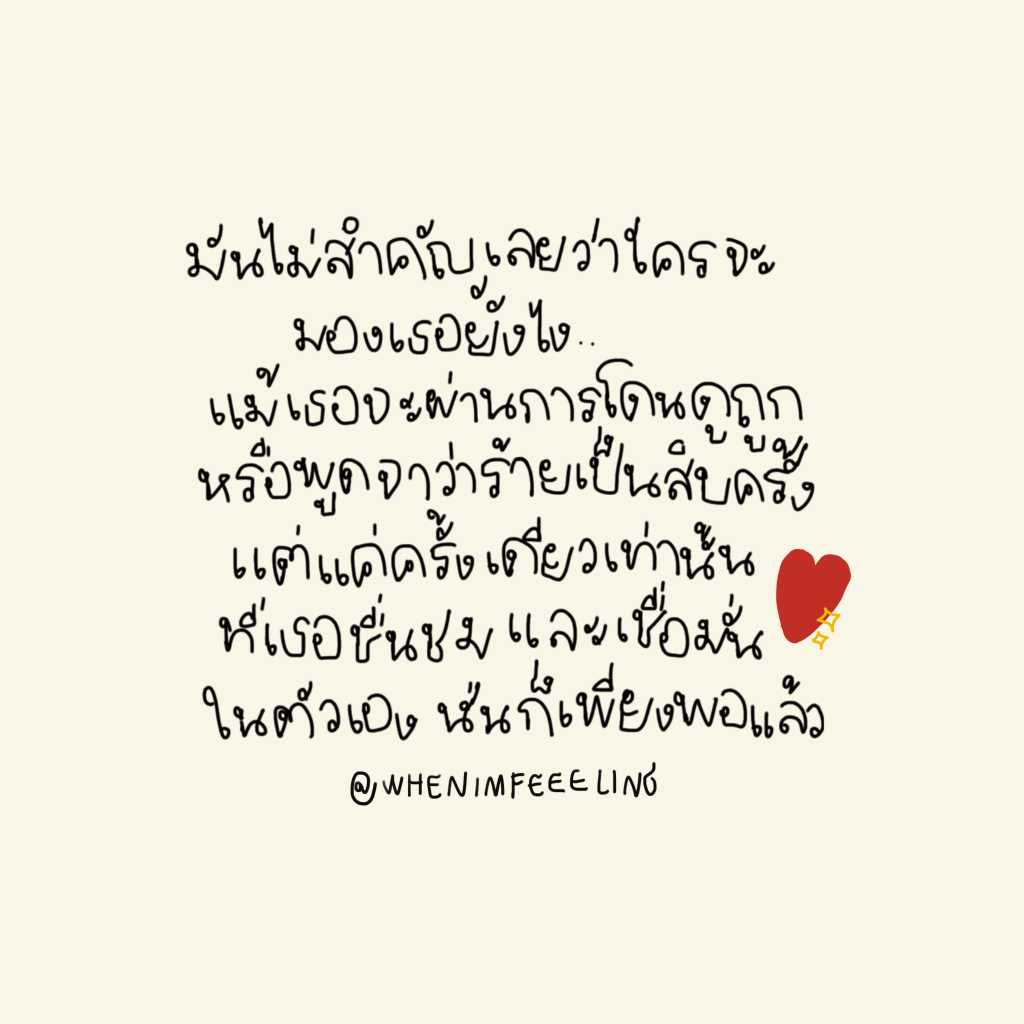 มันไม่สำคัญเลยว่าใครจะ
มองเธอยังไง..
แม้เธอจะผ่านการโดนดูถูก
หรือพูดจาว่าร้ายเป็นสิบครั้ง
แต่แค่ครั้งเดียวเท่านั้น
ที่เธอชื่นชม และเชื่อมั่น
ในตัวเอง นั่นก็เพียงพอแล้ว
@WHENIMFEEELING